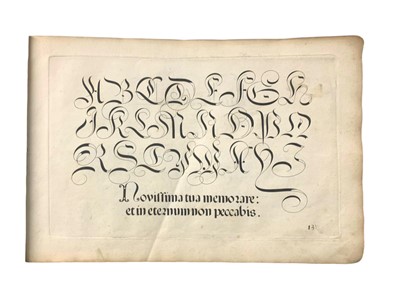 A B C D E F G H
I K L M N O P Q
R S T V W X Y Z
Noviſſima tua memorare:
et in eternum non peccabis.